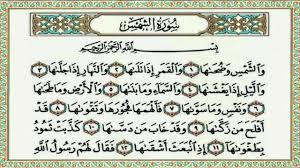 سُورَةُ الشَّمْسِ
بِسْمِ اللَّهِ الرَّحْمَٰنِ الرَّحِيمِ
وَالشَّمْسِ وَضُحَىٰهَا ١ وَالْقَمَرِ إِذَا تَلَىٰهَا ٢ وَالنَّهَارِ إِذَا جَلَّىٰهَا ٣
وَاللَّيْلِ إِذَا يَغْشَىٰهَا ٤ وَالسَّمَاءِ وَمَا بَنَىٰهَا ٥ وَالْأَرْضِ وَمَا طَحَىٰهَا ٦
وَنَفْسٍ وَمَا سَوَّىٰهَا ٧ فَأَلْهَمَهَا فُجُورَهَا وَتَقْوَىٰهَا ٨ قَدْ
أَفْلَحَ مَن زَكَّىٰهَا ٩ وَقَدْ خَابَ مَن دَسَّىٰهَا ١٠ كَذَّبَتْ ثَمُودُ
بِطَغْوَىٰهَا ١١ إِذِ انبَعَثَ أَشْقَىٰهَا ١٢ فَقَالَ لَهُمْ رَسُولُ اللَّهِ